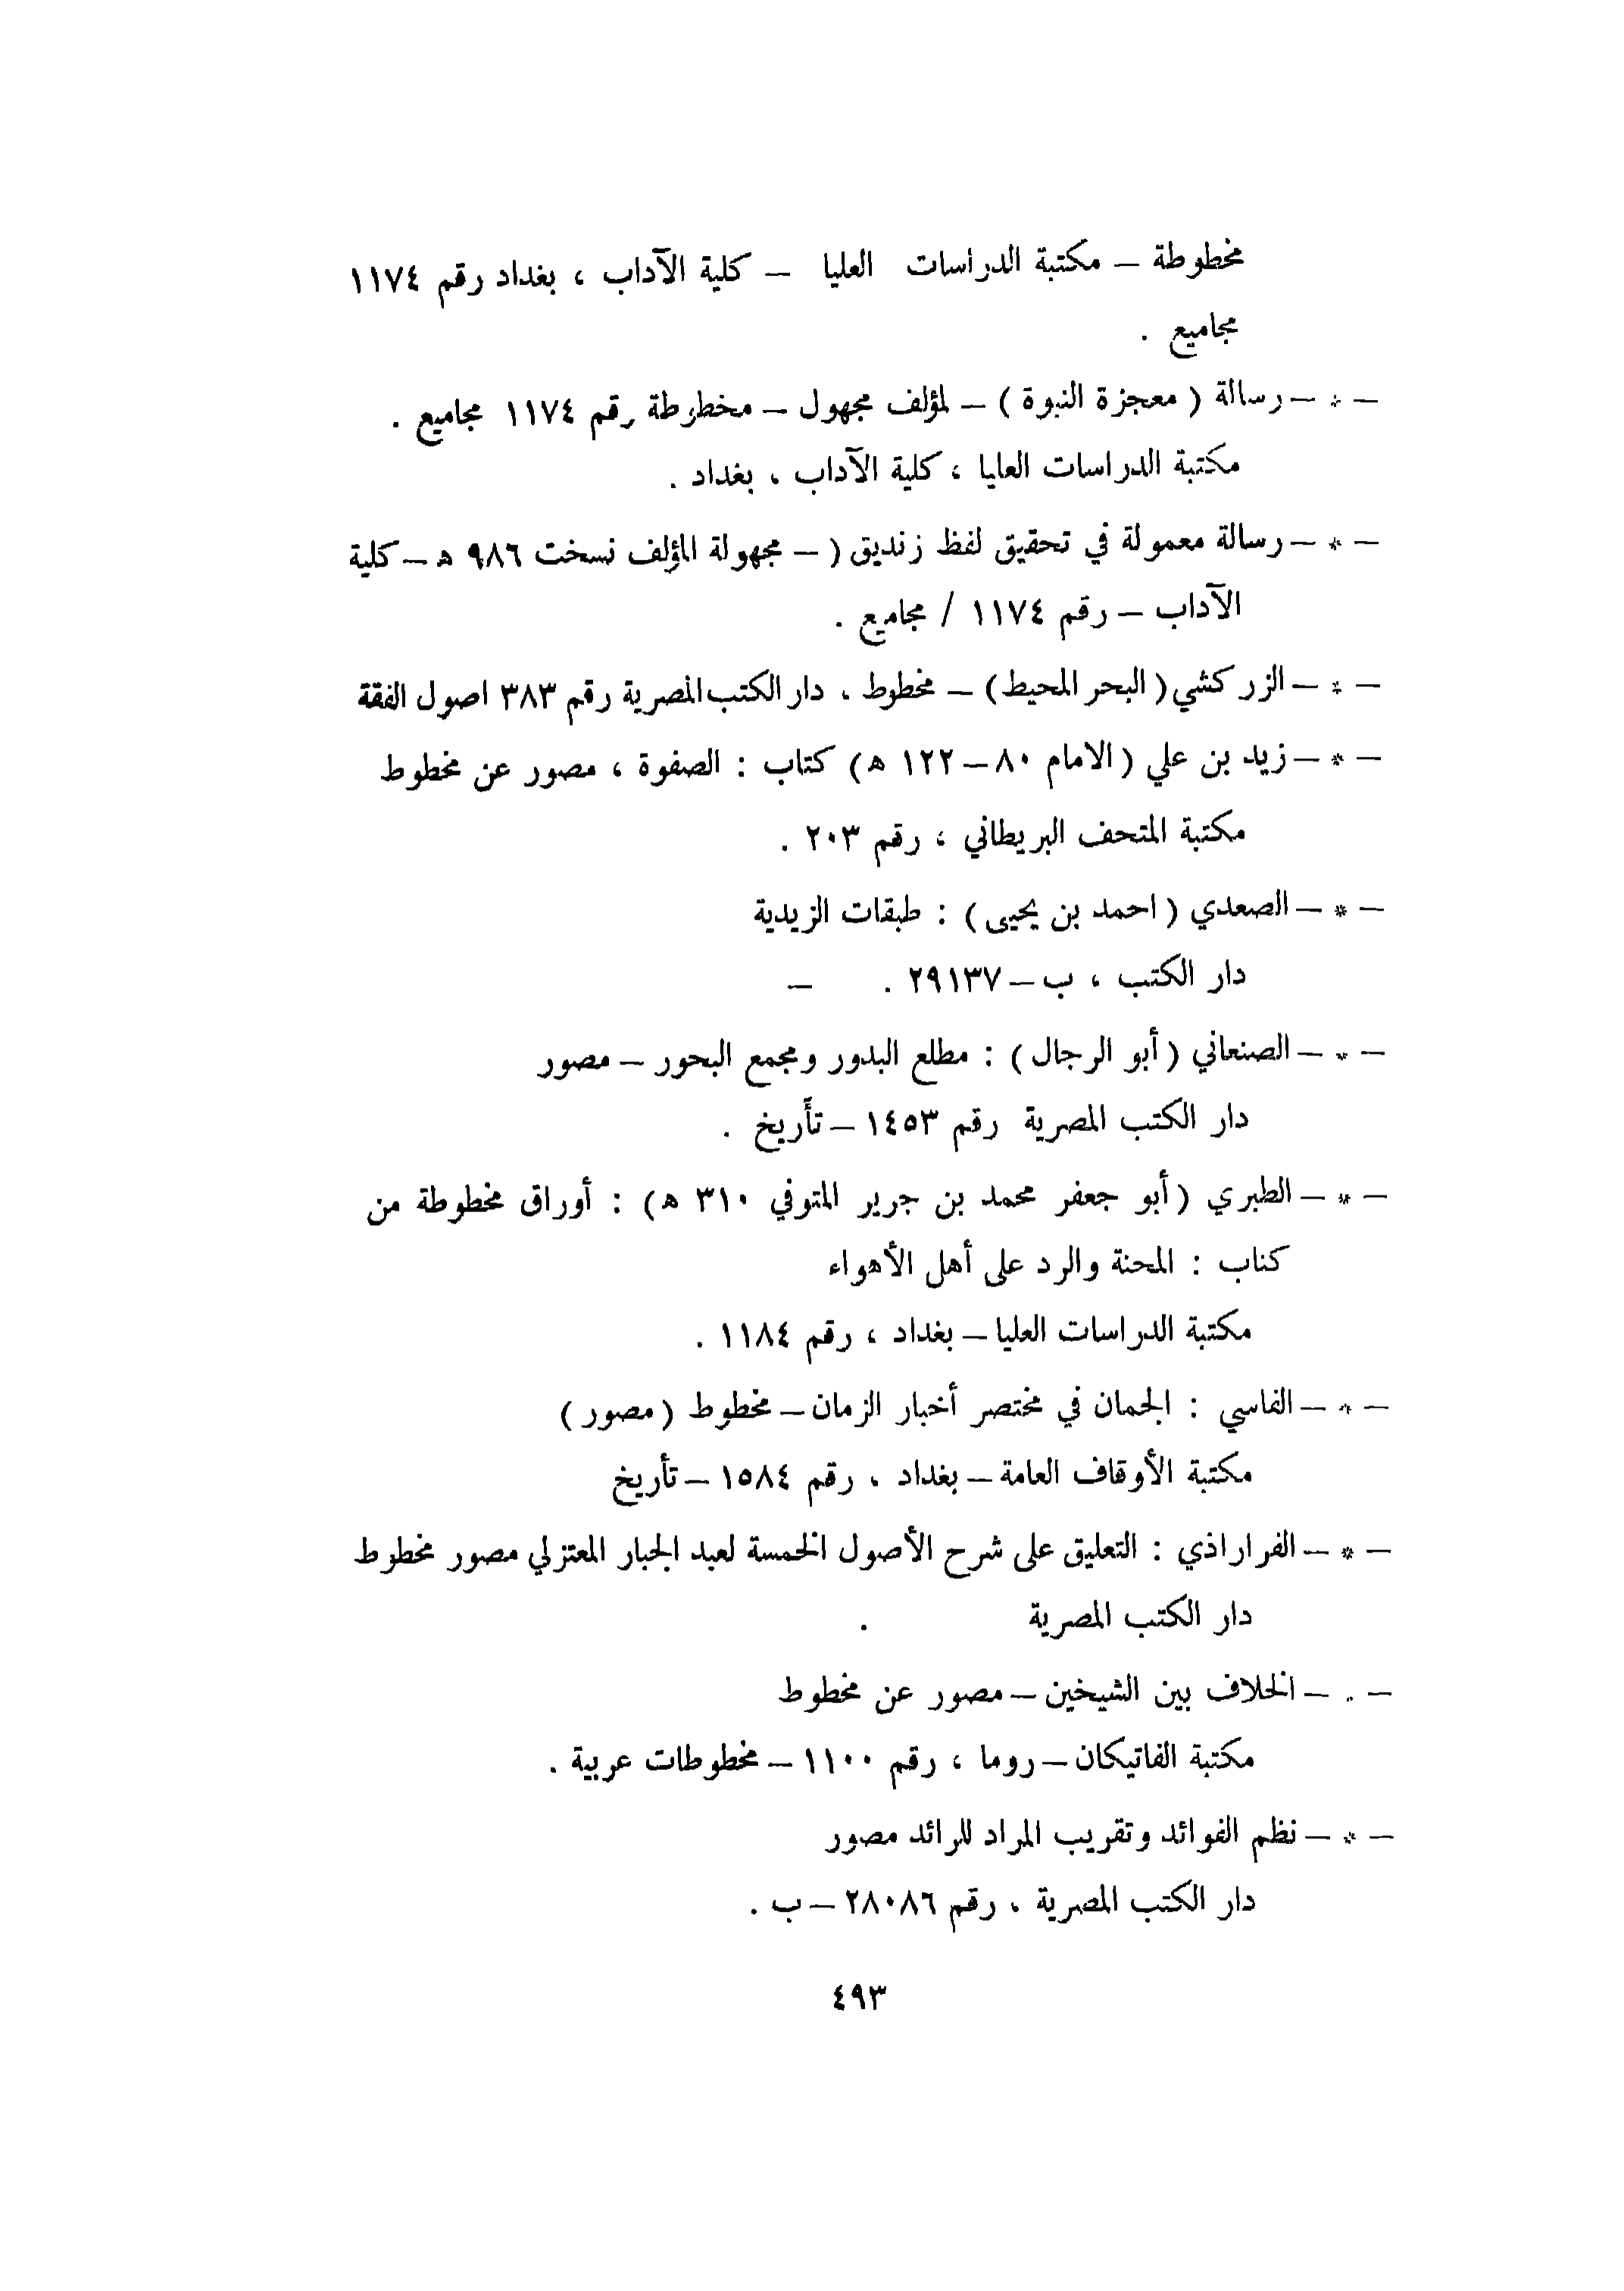 مخطوطة – مكتبة الدراسات العليا – كلية الآداب ، بغداد رقم ١١٧٤
مجاميع .
– * – رسالة ( معجزة النبوة ) – لمؤلف مجهول – مخطوطة رقم ١١٧٤ مجاميع .
مكتبة الدراسات العليا ، كلية الآداب ، بغداد .
– * – رسالة معمولة في تحقيق لفظ زنديق ( – مجهولة المؤلف نسخت ٩٨٦ ه – كلية
الآداب – رقم ١١٧٤ / مجاميع .
– * – الزركشي ( البحر المحيط ) – مخطوط ، دار الكتب المصرية رقم ٣٨٣ اصول الفقة
– * – زيد بن علي ( الامام ٨٠ – ١٢٢ ه ) كتاب : الصفوة ، مصور عن مخطوط
مكتبة المتحف البريطاني ، رقم ٢٠٣ .
– * – الصعدي ( احمد بن يحيى ) : طبقات الزيدية
دار الكتب ، ب – ٢٩١٣٧ . –
– * – الصنعاني ( أبو الرجال ) : مطلع البدور ومجمع البحور – مصور
دار الكتب المصرية رقم ١٤٥٣ – تأريخ .
– * – الطبري ( أبو جعفر محمد بن جرير المتوفي ٣١٠ ه ) : أوراق مخطوطة من
كتاب : المحنة والرد على أهل الأهواء
مكتبة الدراسات العليا – بغداد ، رقم ١١٨٤ .
– * – الفاسي : الجمان في مختصر أخبار الزمان – مخطوط ( مصور )
مكتبة الأوقاف العامة – بغداد ، رقم ١٥٨٤ – تأريخ
– * – الفراراذي : التعليق على شرح الأصول الخمسة لعبد الجبار المعتزلي مصور مخطوط
دار الكتب المصرية .
– . – الخلاف بين الشيخين – مصور عن مخطوط
مكتبة الفاتيكان – روما ، رقم ١١٠٠ – مخطوطات عربية .
– * – نظم الفوائد وتقريب المراد للرائد مصور
دار الكتب المصرية ، رقم ٢٨٠٨٦ – ب .
٤٩٣